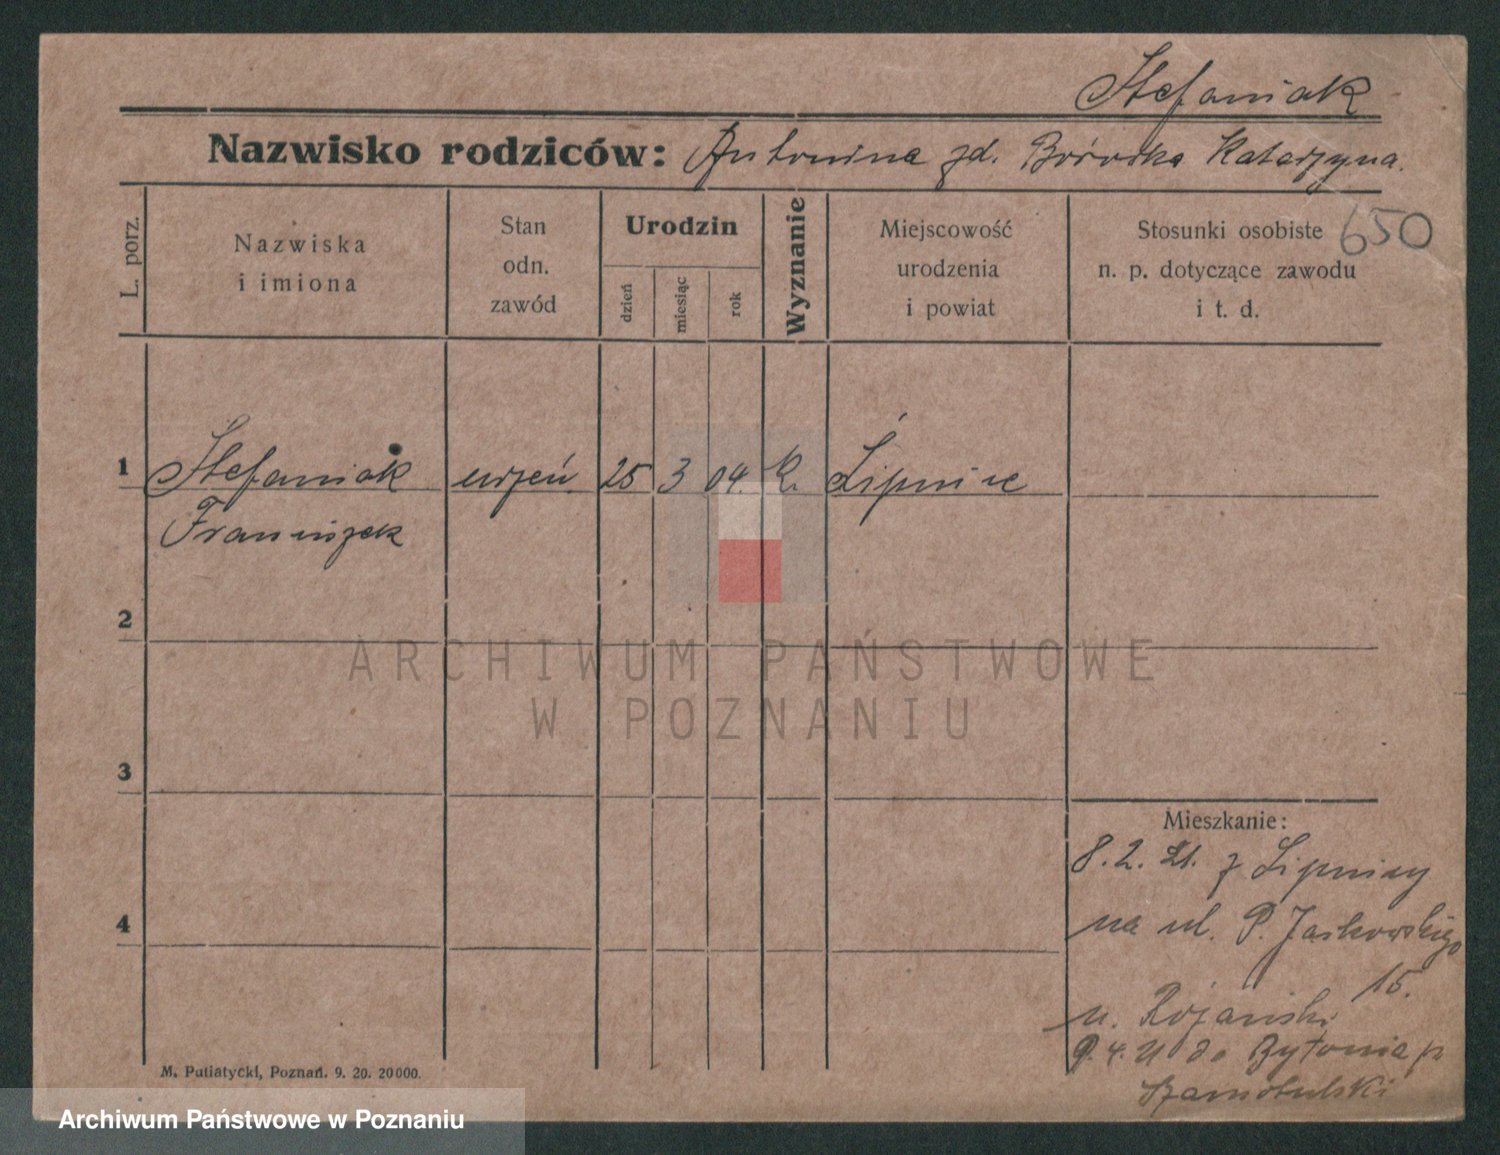 Stefaniak
Nazwisko rodziców: Antonina zd. Katarzyna.
650
L. porz.
Nazwiska
i imiona
Stan
odn.
zawód
Urodzin
dzień
miesiąc
rok
Wyznanie
Miejscowość
urodzenia
i powiat
Stosunki osobiste
n. p. dotyczące zawodu
i t. d.
1 Stefaniak uczeń 25 3 04. K. Lipnice
Franciszek
2
3
4
ARCHIWUM PAŃSTWOWE
W POZNANIU
Mieszkanie:
8.2.21. z Lipnicy
na ul. P. Jackowskiego
15.
u.
9.4.21 do Bytonia p
Szamotulski
M. Putiatycki, Poznań. 9. 20. 20000.
Archiwum Państwowe w Poznaniu